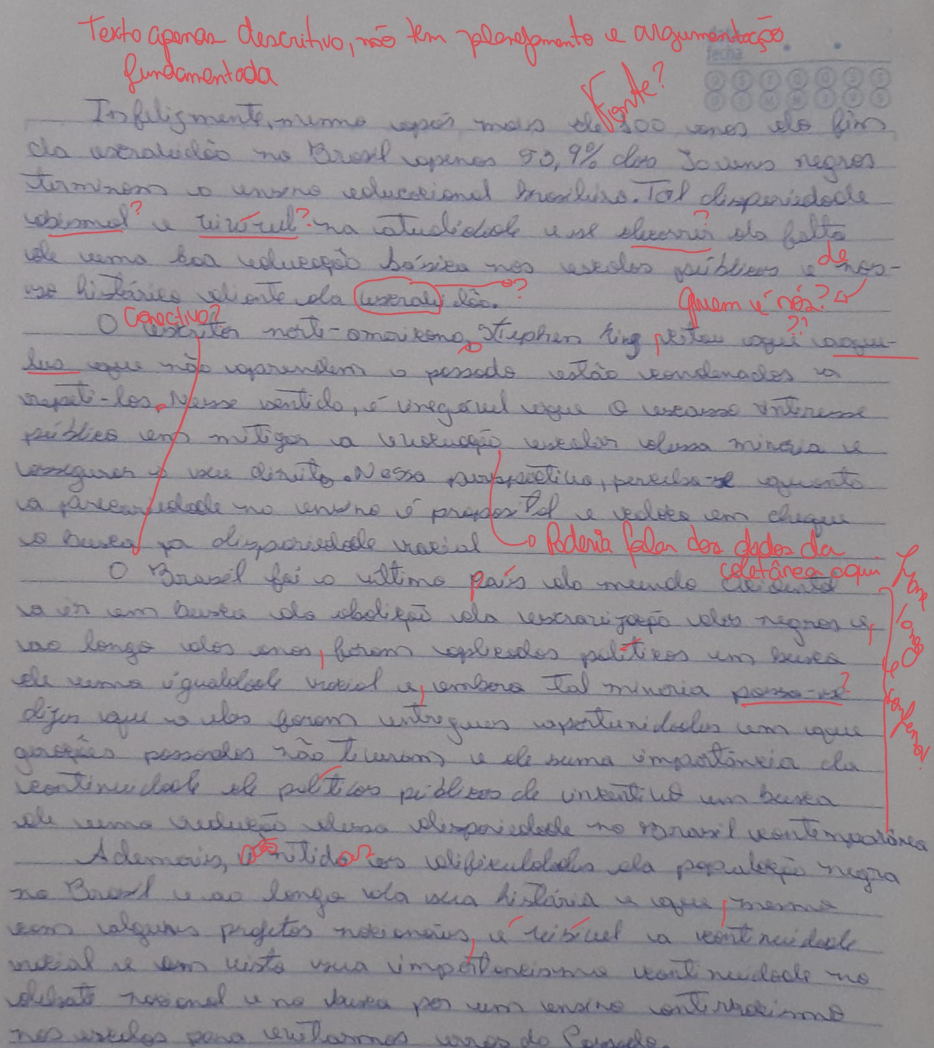 Texto apenas descritivo, não tem planejamento e argumentação
fundamentada
fecha
Fonte?
Infelizmente, mesmo após mais de 100 anos do fim
da escravidão no Brasil apenas 53,9% dos Jovens negros
terminam o ensino educacional brasileiro. Tal disparidade
abismal? e visível? na atualidade e se decorrer? da falta
de uma boa educação básica nas escolas públicas e de nos-
so histórico diante da escravidão. ?
Quem é nós?
Conectivo?
O escritor norte-americano, Stephen King citou aqui aque-
les que não aprendem o passado estão condenados a
repeti-los, Nesse sentido, é inegável que o escasso interesse
público em mitigar a educação escolar dessa minoria e
assegurar o seu direito. Nessa perspectiva, percebe-se quanto
a precariedade no ensino é
em cheque
a busca da disparidade racial
Poderia falar dos dados da
coletânea aqui
O Brasil foi o último país do mundo ocidental
a ir em busca da abolição da escravização dos negros e,
ao longo dos anos, foram aplicadas políticas em busca
de uma igualdade racial e, embora tal minoria possa-se?
dizer que a elas foram entregues oportunidades em que
gerações passadas não tiveram e de suma importância da
continuidade de políticas públicas de incentivo em busca
de uma redução dessa disparidade no Brasil contemporâneo
longo e
confuso!
Ademais,
as dificuldades da população negra
no Brasil e ao longo da sua história e que, mesmo
com alguns projetos nacionais, é visível a continuidade
racial e em vista sua
continuidade no
debate nacional e na busca por um ensino antirracismo
nas escolas para evitarmos erros do Passado.